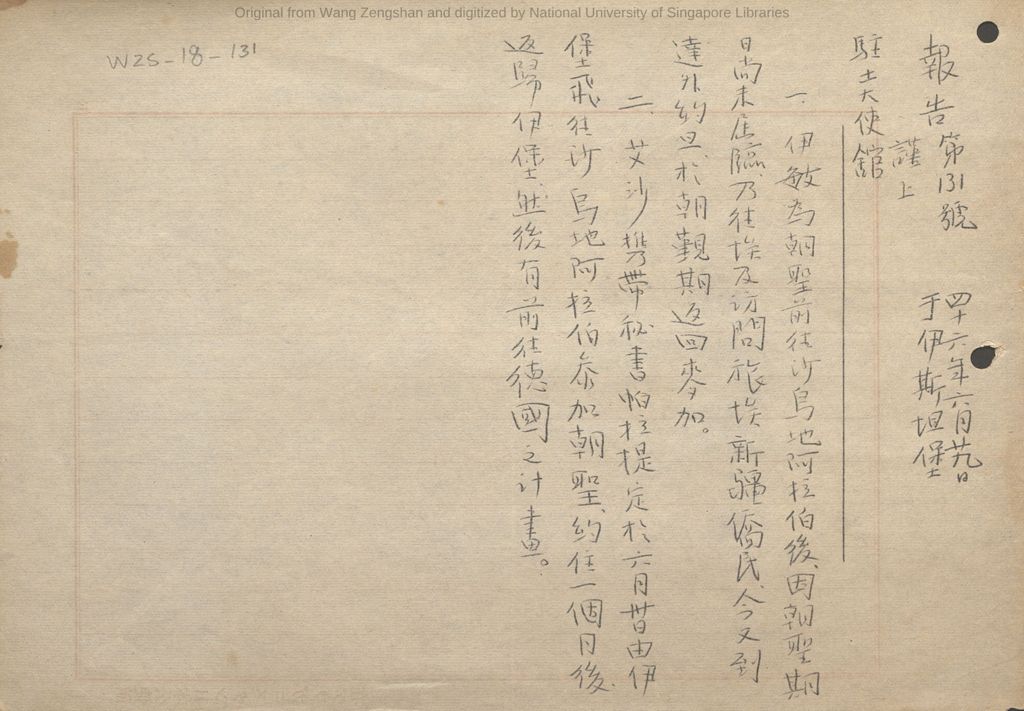 Original from Wang Zengshan and digitized by National University of Singapore Libraries
WZS-18-131
報告第131號 四十六年六月廿九日
于伊斯坦堡
謹上
駐土大使館
一. 伊敏為朝聖前往沙烏地阿拉伯後、因朝聖期
日尚未屆臨、乃往埃及訪問旅埃新疆僑民、今又到
達外約旦、於朝覲期返回麥加。
二. 艾沙携帶秘書帕拉提定於六月廿日由伊
堡飛往沙烏地阿拉伯參加朝聖、約住一個月後、
返歸伊堡、然後有前往德國之计畫。